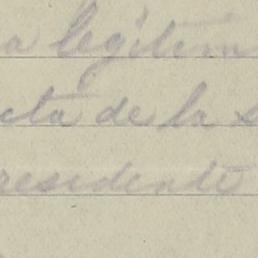 a legitim
cta de la s
residente